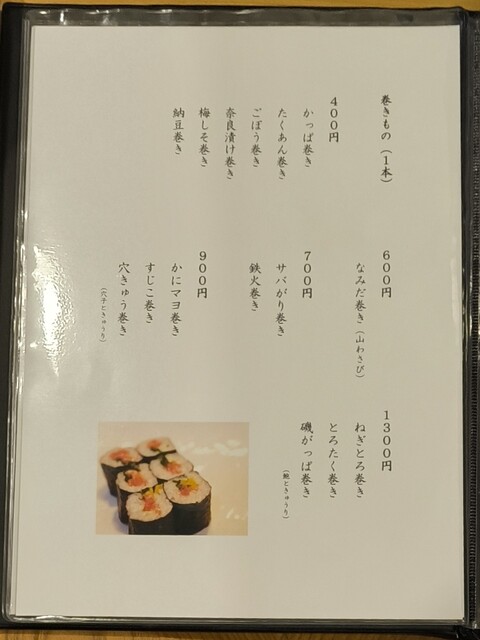 巻きもの（1本）
400円
かっぱ巻き
たくあん巻き
ごぼう巻き
奈良漬け巻き
梅しそ巻き
納豆巻き
600円
なみだ巻き（山わさび）
700円
サバがり巻き
鉄火巻き
900円
かにマヨ巻き
すじこ巻き
穴きゅう巻き
（穴子ときゅうり）
1300円
ねぎとろ巻き
とろたく巻き
磯がっぱ巻き